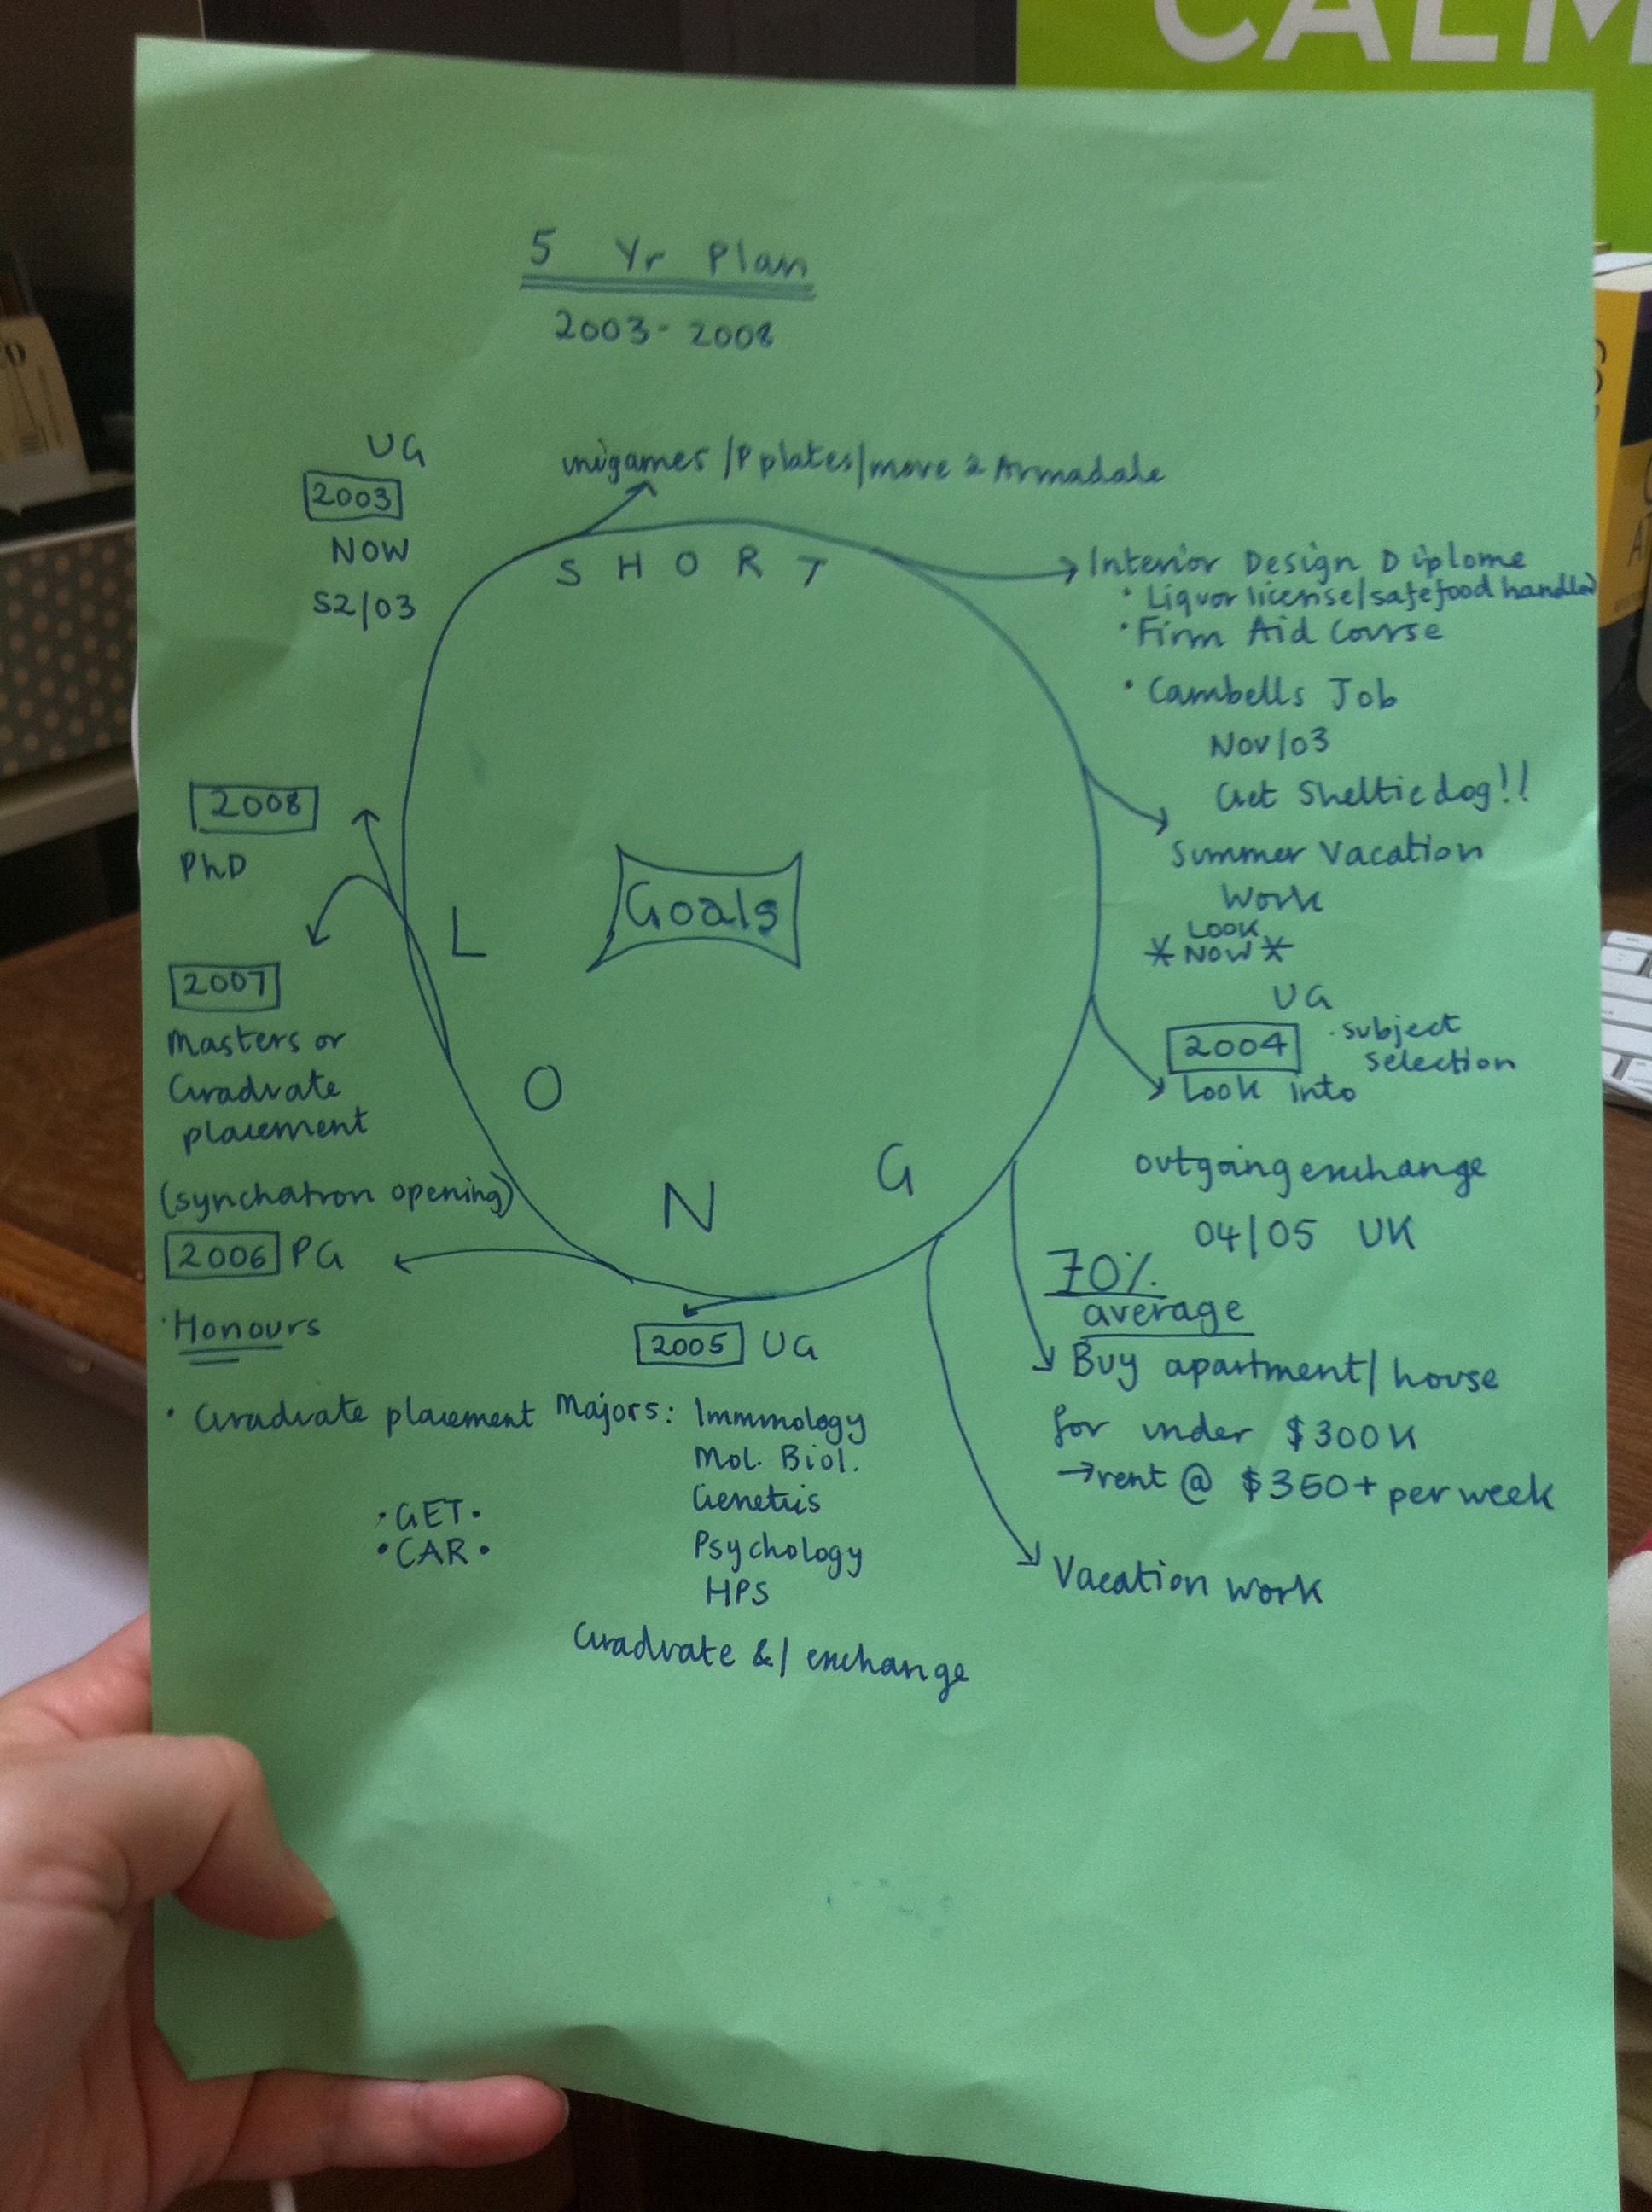 CALM
5 Yr Plan
2003-2008
UG
2003
NOW
S2/03
unigames /P plates/move 2 Armadale
SHORT
Interior Design Diplome
• Liquor license/safefood handler
• Firm Aid Course
• Cambells Job
Nov/03
Get Sheltie dog!!
Summer Vacation
Work
* LOOK
NOW *
UG
2004 • subject
selection
Look into
outgoing exchange
04/05 UK
70%
average
Buy apartment/house
for under $300K
→rent @ $350+ per week
Vacation work
Goals
LONG
2005 UG
Majors: Immnology
Mol. Biol.
Genetis
Psychology
HPS
Graduate &/ exchange
2006 PG
• Honours
• Graduate placement
• GET •
• CAR •
2007
Masters or
Graduate
placement
(synchatron opening)
2008
PhD